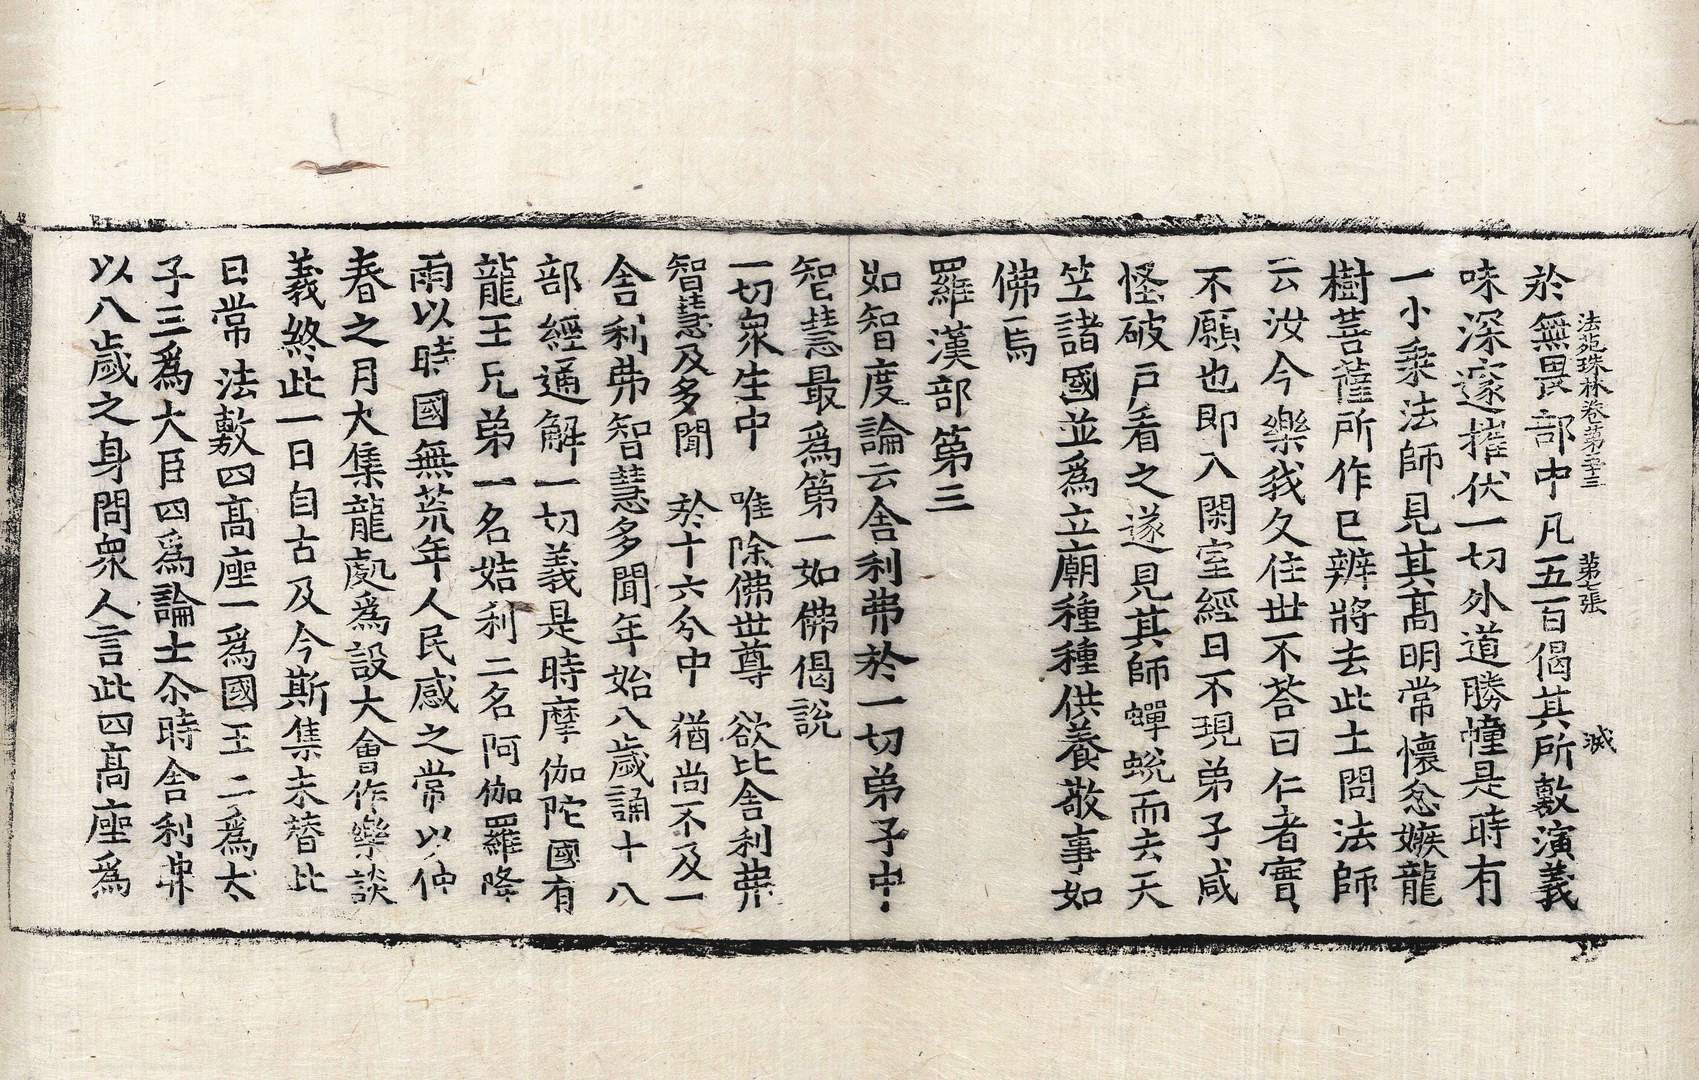 法苑珠林卷第五十三　第七張　滅
於無畏部中凡五百偈其所敷演義
味深邃摧伏一切外道勝幢是時有
一小乘法師見其髙明常懷忿嫉龍
樹菩薩所作已辦將去此土問法師
云汝今樂我久住世不荅曰仁者實
不願也即入閑室經日不現弟子咸
怪破戸看之遂見其師蟬蛻而去天
笠諸國並爲立廟種種供養敬事如
佛焉
羅漢部第三
如智度論云舍利弗於一切弟子中
智慧最爲第一如佛偈說
一切衆生中　唯除佛世尊　欲比舍利弗
智慧及多聞　於十六分中　猶尚不及一
舍利弗智慧多聞年始八歲誦十八
部經通解一切義是時摩伽陀國有
龍王兄弟一名姞利二名阿伽羅降
雨以時國無荒年人民感之常以仲
春之月大集龍處爲設大會作樂談
義終此一日自古及今斯集未替此
日常法敷四髙座一爲國王二爲太
子三爲大臣四爲論士尒時舍利弗
以八歲之身問衆人言此四髙座爲